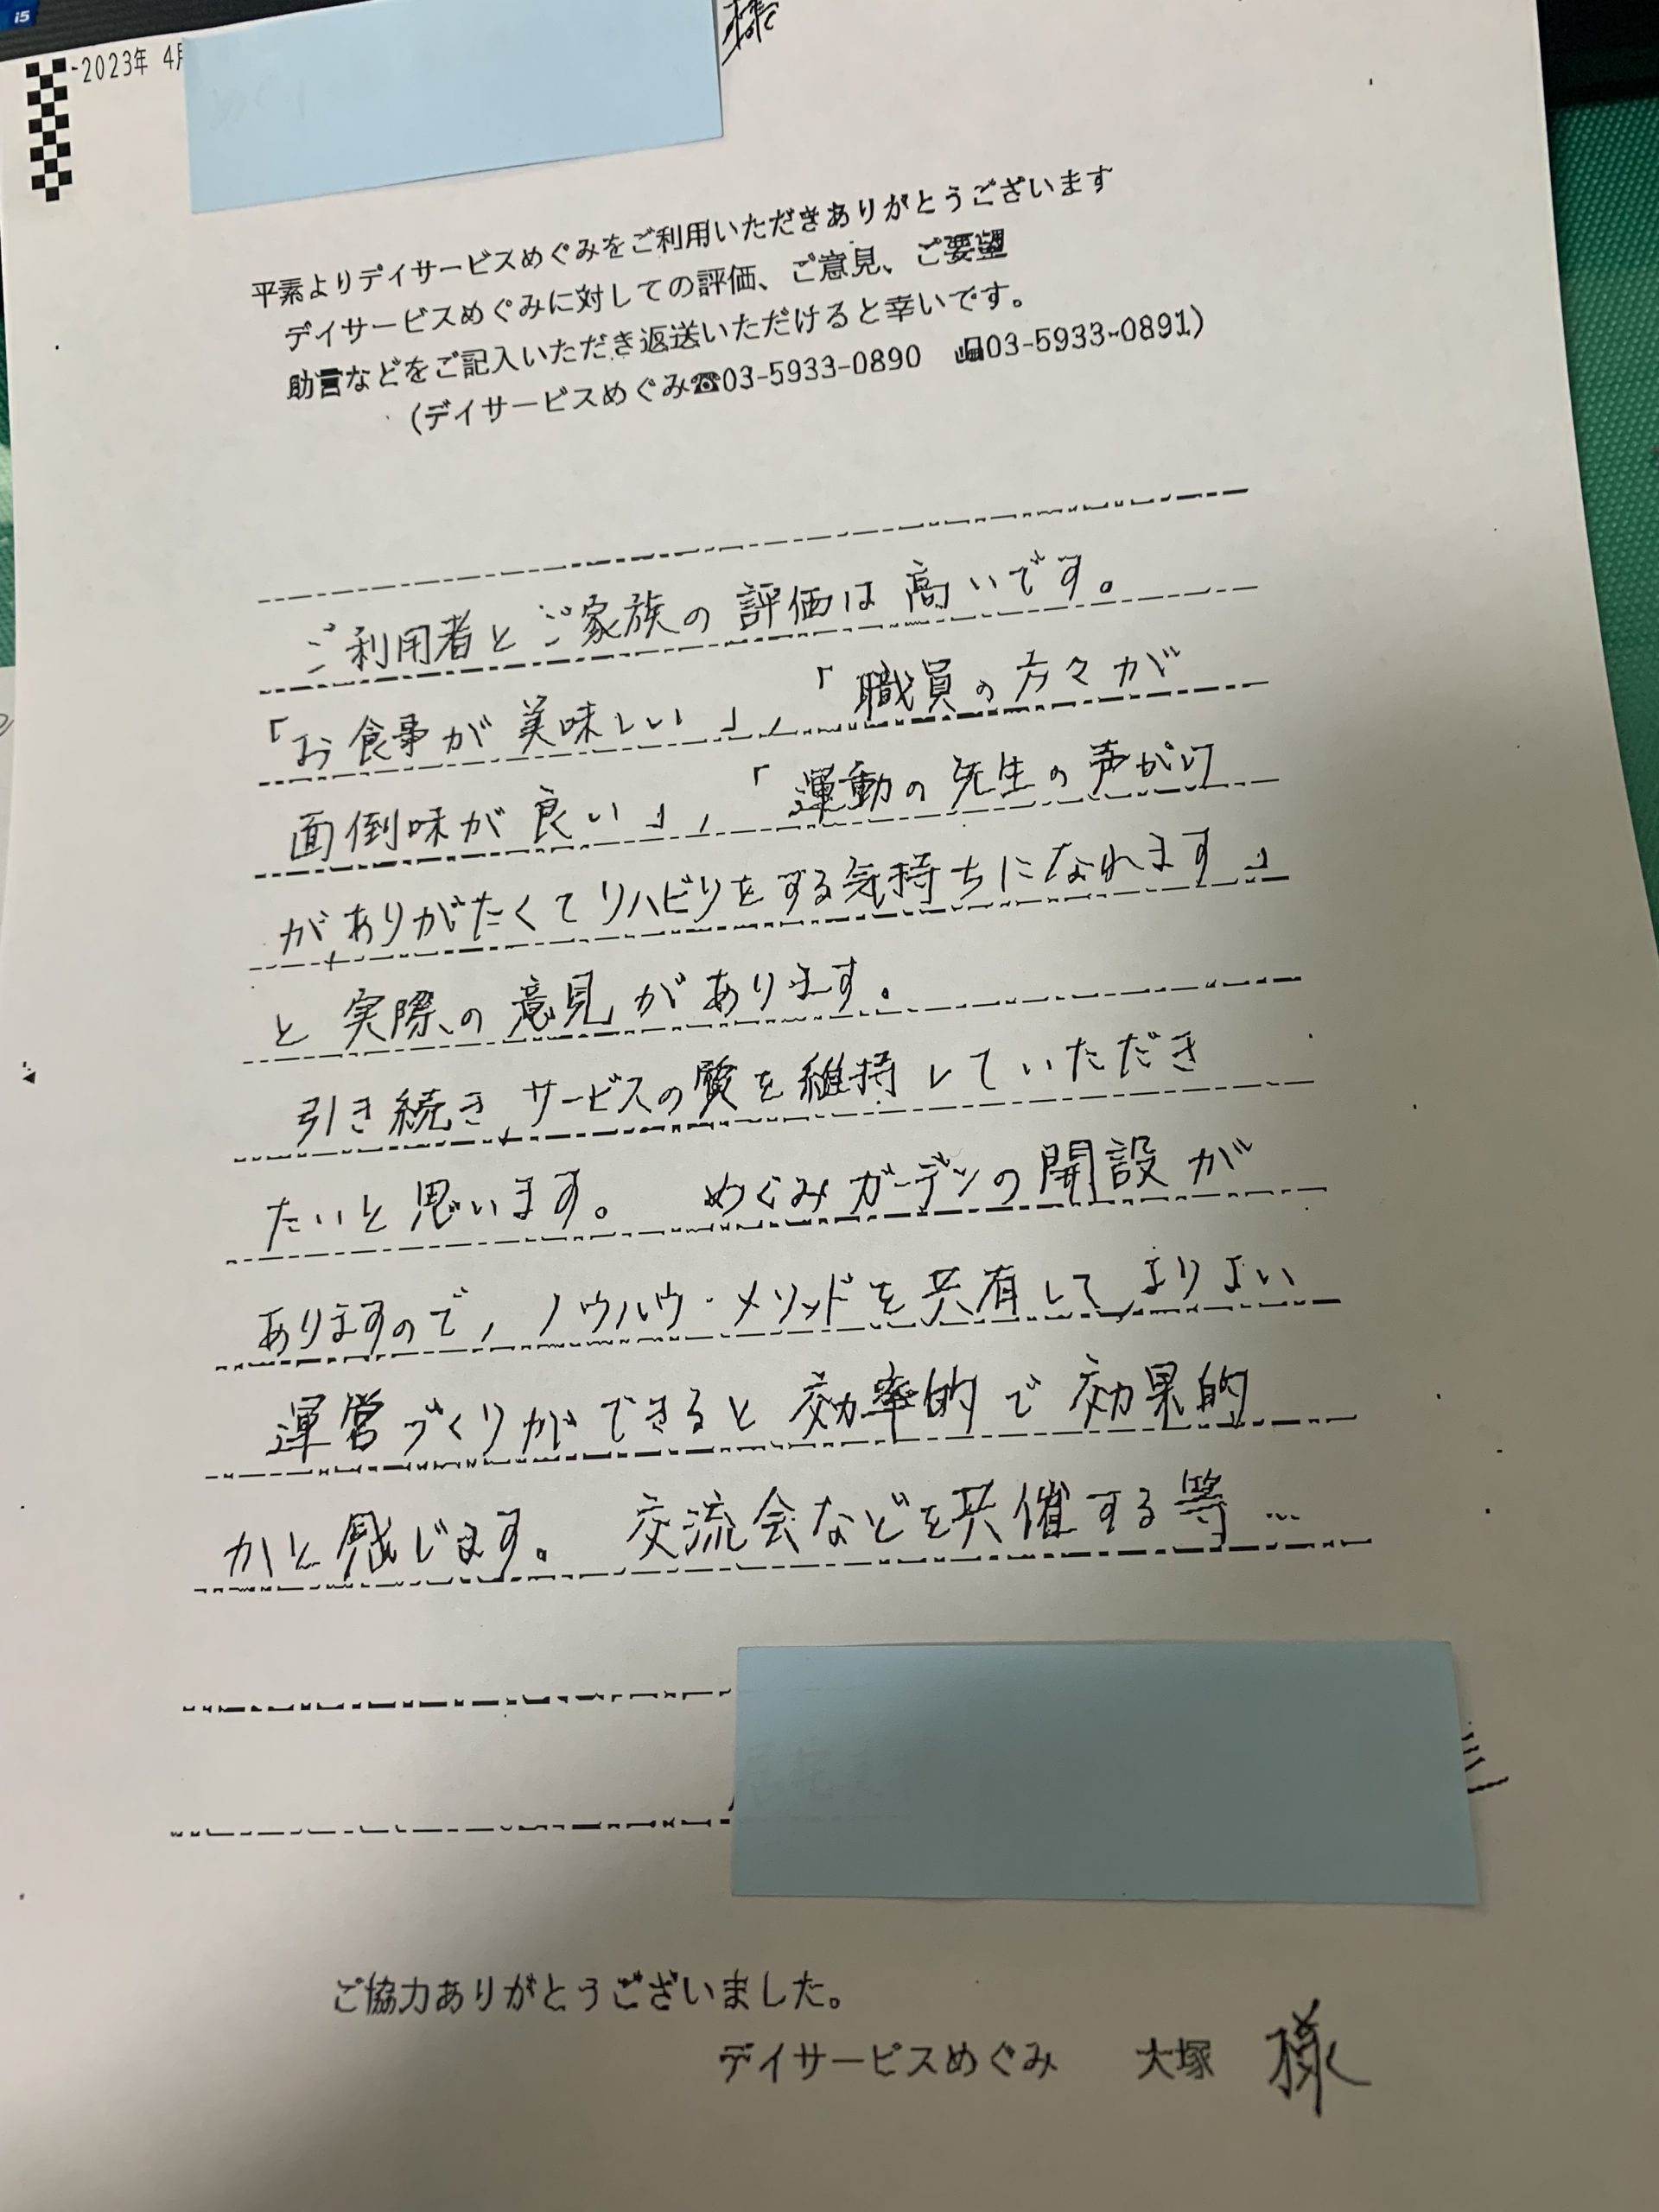 i5
-2023年 4月
様
平素よりデイサービスめぐみをご利用いただきありがとうございます
デイサービスめぐみに対しての評価、ご意見、ご要望
助言などをご記入いただき返送いただけると幸いです。
(デイサービスめぐみ☎03-5933-0890 📠03-5933-0891)
ご利用者とご家族の評価は高いです。
「お食事が美味しい」,「職員の方々が
面倒味が良い」,「運動の先生の声がけ
が,ありがたくてリハビリをする気持ちになれます」
と実際の意見があります。
引き続き,サービスの質を維持していただき
たいと思います。 めぐみガーデンの開設が
ありますので,ノウハウ・メソッドを共有して,よりよい
運営づくりができると効率的で効果的
かと感じます。 交流会などを共催する等…
ご協力ありがとうございました。
デイサービスめぐみ 大塚 様